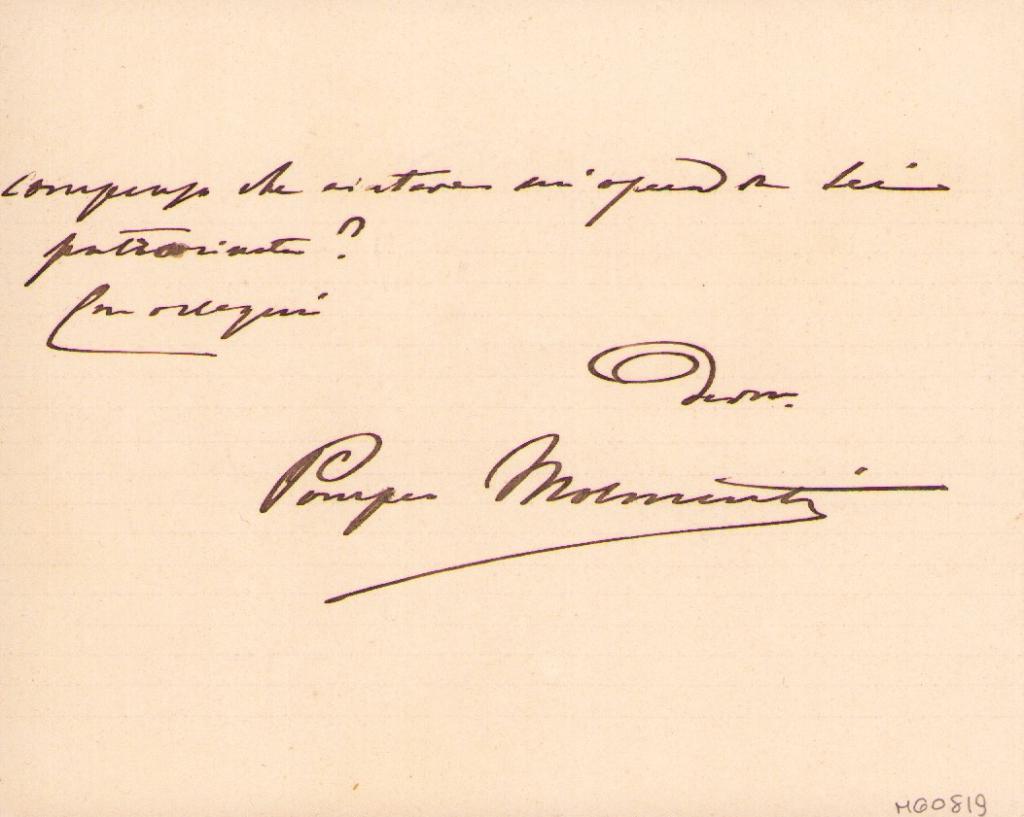 compenso che aiutare un'opera da Lei
patrocinata?
Con ossequi
Devm.
Pompeo Molmenti
MG0819